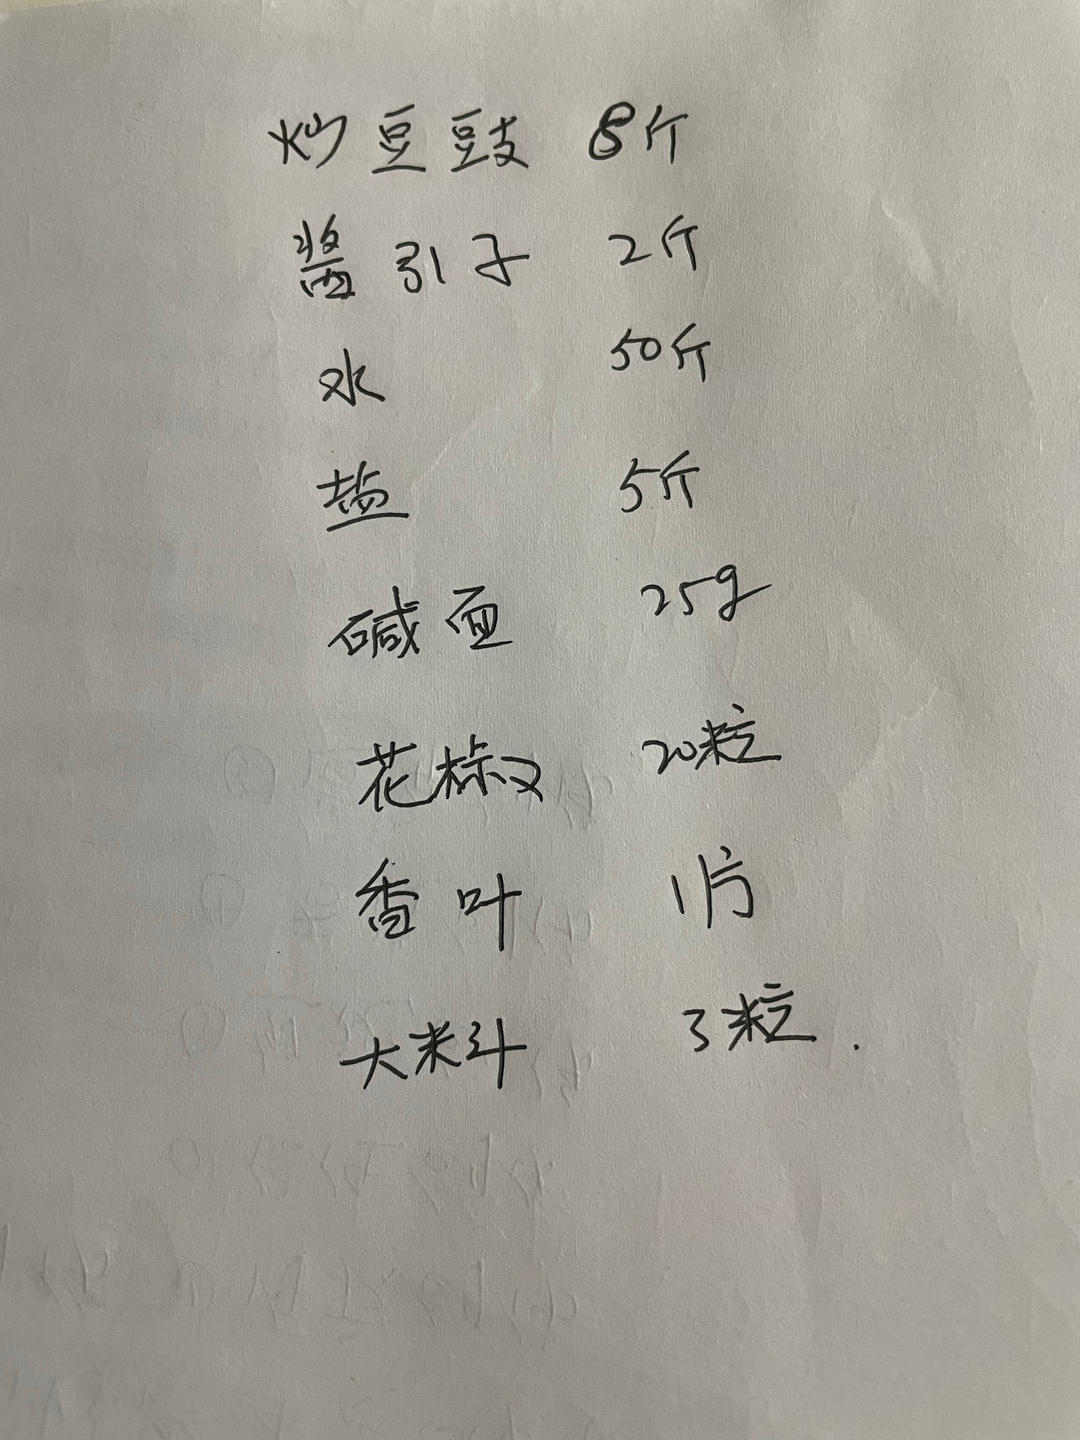 炒豆豉 8斤
酱引子 2斤
水 50斤
盐 5斤
碱面 25g
花椒 20粒
香叶 1片
大料 3粒.